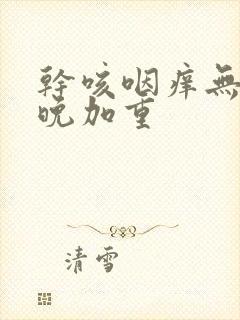 幹咳咽痒無
晚加重
清雪